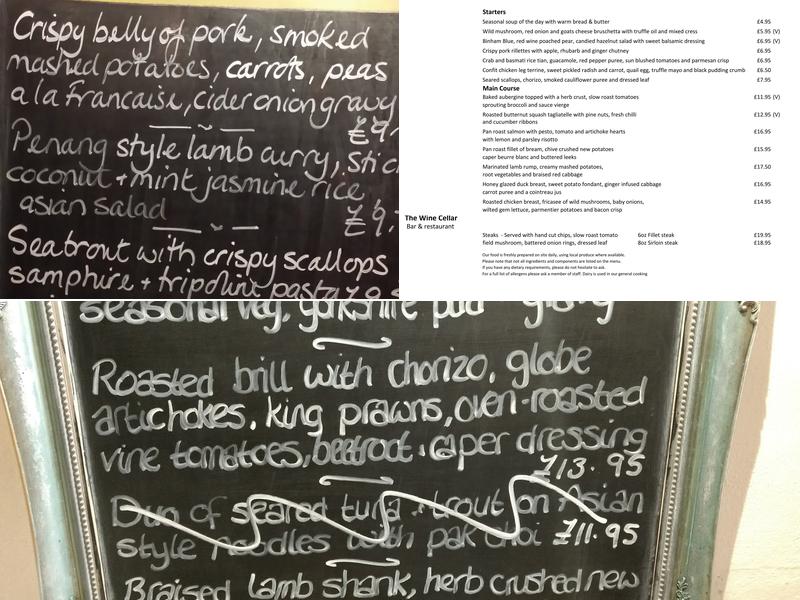 Crispy belly of pork, smoked
mashed potatoes, carrots, peas
a la Francaise, cider onion gravy
£9.
Penang style lamb curry, stic
coconut + mint jasmine rice
asian salad
£9.
Seatrout with crispy scallops
samphire + tripoline pasta
Starters
Seasonal soup of the day with warm bread & butter £4.95
Wild mushroom, red onion and goats cheese bruschetta with truffle oil and mixed cress £5.95 (V)
Binham Blue, red wine poached pear, candied hazelnut salad with sweet balsamic dressing £6.95 (V)
Crispy pork rillettes with apple, rhubarb and ginger chutney £6.95
Crab and basmati rice tian, guacamole, red pepper puree, sun blushed tomatoes and parmesan crisp £6.95
Confit chicken leg terrine, sweet pickled radish and carrot, quail egg, truffle mayo and black pudding crumb £6.50
Seared scallops, chorizo, smoked cauliflower puree and dressed leaf £7.95
Main Course
Baked aubergine topped with a herb crust, slow roast tomatoes £11.95 (V)
sprouting broccoli and sauce vierge
Roasted butternut squash tagliatelle with pine nuts, fresh chilli £12.95 (V)
and cucumber ribbons
Pan roast salmon with pesto, tomato and artichoke hearts £16.95
with lemon and parsley risotto
Pan roast fillet of bream, chive crushed new potatoes £15.95
caper beurre blanc and buttered leeks
Marinated lamb rump, creamy mashed potatoes, £17.50
root vegetables and braised red cabbage
Honey glazed duck breast, sweet potato fondant, ginger infused cabbage £16.95
carrot puree and a cointreau jus
Roasted chicken breast, fricasee of wild mushrooms, baby onions, £14.95
wilted gem lettuce, parmentier potatoes and bacon crisp
The Wine Cellar
Bar & restaurant
Steaks - Served with hand cut chips, slow roast tomato 6oz Fillet steak £19.95
field mushroom, battered onion rings, dressed leaf 8oz Sirloin steak £18.95
Our food is freshly prepared on site daily, using local produce where available.
Please note that not all ingredients and components are listed on the menu.
If you have any dietary requirements, please do not hesitate to ask.
For a full list of allergens please ask a member of staff. Dairy is used in our general cooking
seasonal veg, yorkshire pud gravy
Roasted brill with chorizo, globe
artichokes, king prawns, oven-roasted
vine tomatoes, beetroot, caper dressing
£13.95
Duo of seared tuna + trout on Asian
style noodles with pak choi £11.95
Braised lamb shank, herb crushed new